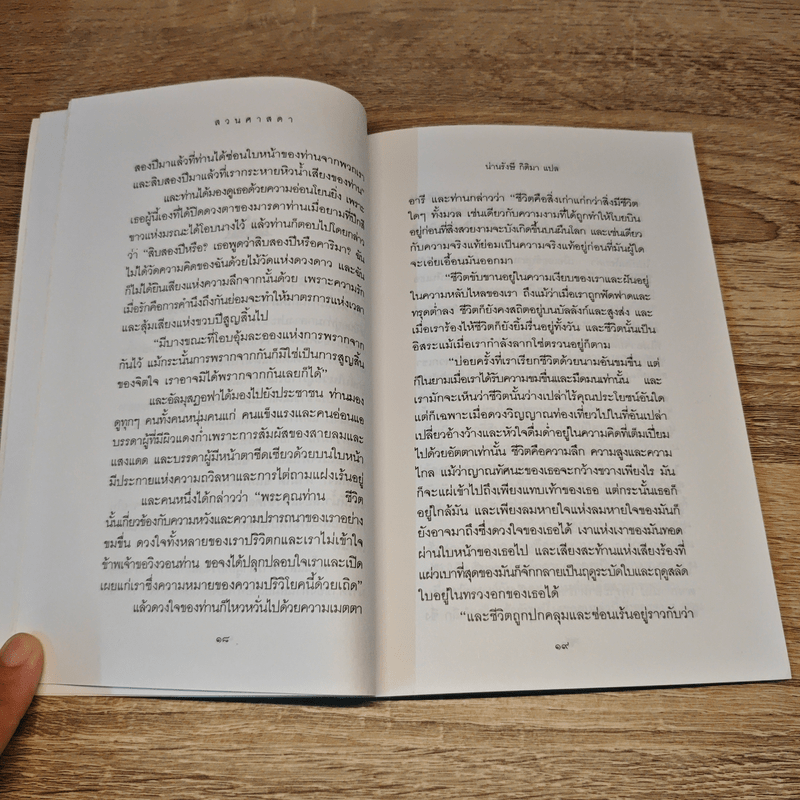 สวนศาสดา
สองปีมาแล้วที่ท่านได้ซ่อนใบหน้าของท่านจากพวกเรา
และสิบสองปีมาแล้วที่เรากระหายหิวน้ำเสียงของท่าน"
และท่านได้มองดูเธอด้วยความอ่อนโยนยิ่ง เพราะ
เธอผู้นี้เองที่ได้ปิดดวงตาของมารดาท่านเมื่อยามที่ปีกสี
ขาวแห่งมรณะได้โอบนางไว้ แล้วท่านก็ตอบไปโดยกล่าว
ว่า "สิบสองปีหรือ? เธอพูดว่าสิบสองปีหรือคาริมา? ฉัน
ไม่ได้วัดความคิดของฉันด้วยไม้วัดแห่งดวงดาว และฉัน
ก็ไม่ได้ยินเสียงแห่งความลึกจากนั้นด้วย เพราะความรัก
เมื่อรักคือการคำนึงถึงกันย่อมจะทำให้มาตรการแห่งเวลา
และสุ้มเสียงแห่งขวบปีสูญสิ้นไป
"มีบางขณะที่โอบอุ้มละอองแห่งการพรากจาก
กันไว้ แม้กระนั้นการพรากจากกันก็มิใช่เป็นการสูญสิ้น
ของจิตใจ เราอาจมิได้พรากจากกันเลยก็ได้"
และอัลมุสฏอฟาได้มองไปยังประชาชน ท่านมอง
ดูทุกๆ คนทั้งคนหนุ่มคนแก่ คนแข็งแรงและคนอ่อนแอ
บรรดาผู้ที่มีผิวแดงก่ำเพราะการสัมผัสของสายลมและ
แสงแดด และบรรดาผู้มีหน้าตาซีดเซียวด้วยบนใบหน้า
มีประกายแห่งความถวิลหาและการไต่ถามแฝงเร้นอยู่
และคนหนึ่งได้กล่าวว่า "พระคุณท่าน ชีวิต
นั้นเกี่ยวข้องกับความหวังและความปรารถนาของเราอย่าง
ขมขื่น ดวงใจทั้งหลายของเราปริวิตกและเราไม่เข้าใจ
ข้าพเจ้าขอวิงวอนท่าน ขอจงได้ปลุกปลอบใจเราและเปิด
เผยแก่เราซึ่งความหมายของความปริวิโยคนี้ด้วยเถิด"
แล้วดวงใจของท่านก็ไหวหวั่นไปด้วยความเมตตา
๑๘
น่านรังษี กิติมา แปล
อารี และท่านกล่าวว่า "ชีวิตคือสิ่งเก่าแก่กว่าสิ่งมีชีวิต
ใดๆ ทั้งมวล เช่นเดียวกับความงามที่ได้ถูกทำให้โบยบิน
อยู่ก่อนที่สิ่งสวยงามจะบังเกิดขึ้นบนผืนโลก และเช่นเดียว
กับความจริงแท้ย่อมเป็นความจริงแท้อยู่ก่อนที่มันผู้ใด
จะเอ่ยเอื้อนมันออกมา
"ชีวิตขับขานอยู่ในความเงียบของเราและฝันอยู่
ในความหลับใหลของเรา ถึงแม้ว่าเมื่อเราถูกพัดฟาดและ
ทรุดต่ำลง ชีวิตก็ยังคงสถิตอยู่บนบัลลังก์และสูงส่ง และ
เมื่อเราร้องไห้ชีวิตก็ยังยิ้มรื่นอยู่ทั้งวัน และชีวิตนั้นเป็น
อิสระแม้เมื่อเรากำลังลากโซ่ตรวนอยู่ก็ตาม
"บ่อยครั้งที่เราเรียกชีวิตด้วยนามอันขมขื่น แต่
ก็ในยามเมื่อเราได้รับความขมขื่นและมืดมนเท่านั้น และ
เรามักจะเห็นว่าชีวิตนั้นว่างเปล่าไร้คุณประโยชน์อันใด
แต่ก็เฉพาะเมื่อดวงวิญญาณท่องเที่ยวไปในที่อันเปล่า
เปลี่ยวอ้างว้างและหัวใจดื่มด่ำอยู่ในความคิดที่เต็มเปี่ยม
ไปด้วยอัตตาเท่านั้น ชีวิตคือความลึก ความสูงและความ
ไกล แม้ว่าญาณทัศนะของเธอจะกว้างขวางเพียงไร มัน
ก็จะแผ่เข้าไปถึงเพียงแทบเท้าของเธอ แต่กระนั้นเธอก็
อยู่ใกล้มัน และเพียงลมหายใจแห่งลมหายใจของมันก็
ยังอาจมาถึงซึ่งดวงใจของเธอได้ เงาแห่งเงาของมันทอด
ผ่านใบหน้าของเธอไป และเสียงสะท้านแห่งเสียงร้องที่
แผ่วเบาที่สุดของมันก็จักกลายเป็นฤดูระบัดใบและฤดูสลัด
ใบอยู่ในทรวงอกของเธอได้
"และชีวิตถูกปกคลุมและซ่อนเร้นอยู่ราวกับว่า
๑๙